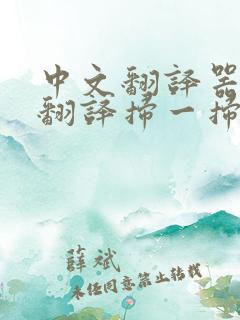 中文翻譯器
翻譯掃一掃
薛斌
未经同意禁止转载